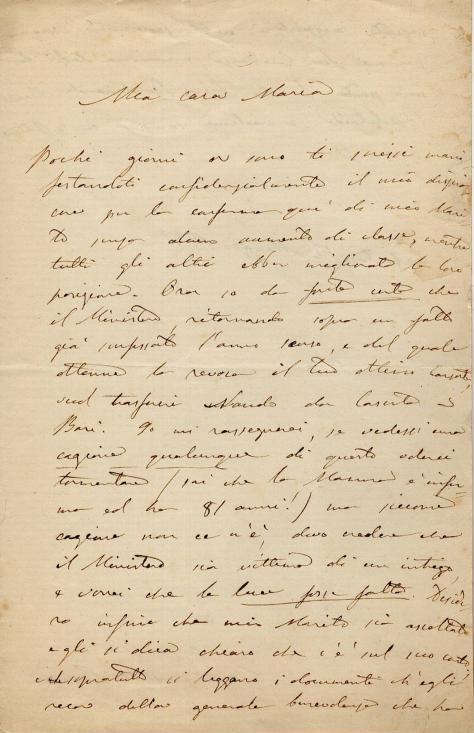 Mia cara Maria
Pochi giorni or sono ti scrissi mani
festandoti confidenzialmente il mio dispia
cere per la conferma qui di mio Mari
to senza alcun aumento di classe, mentre
tutti gli altri ebber migliorato la loro
posizione. Ora so da fonte certa che
il Ministero, ritornando sopra un fatto
già successo l'anno scorso, e del quale
ottenne la revoca il tuo ottimo
vuol trasferire Nando da Caserta a
Bari. Io mi rassegnerei, se vedessi una
cagione qualunque di questo volerci
tormentare (sai che la Mamma è infer
ma ed ha 81 anni!) ma siccome
cagione non ce n'è, devo credere che
il Ministero sia vittima di un intrigo,
e vorrei che la luce fosse fatta. Deside
ro infine che mio Marito sia ascoltato
e gli si dica chiaro che c'è sul suo conto
soprattutto si leggano i documenti ch'egli
reca della generale benevolenza che ha